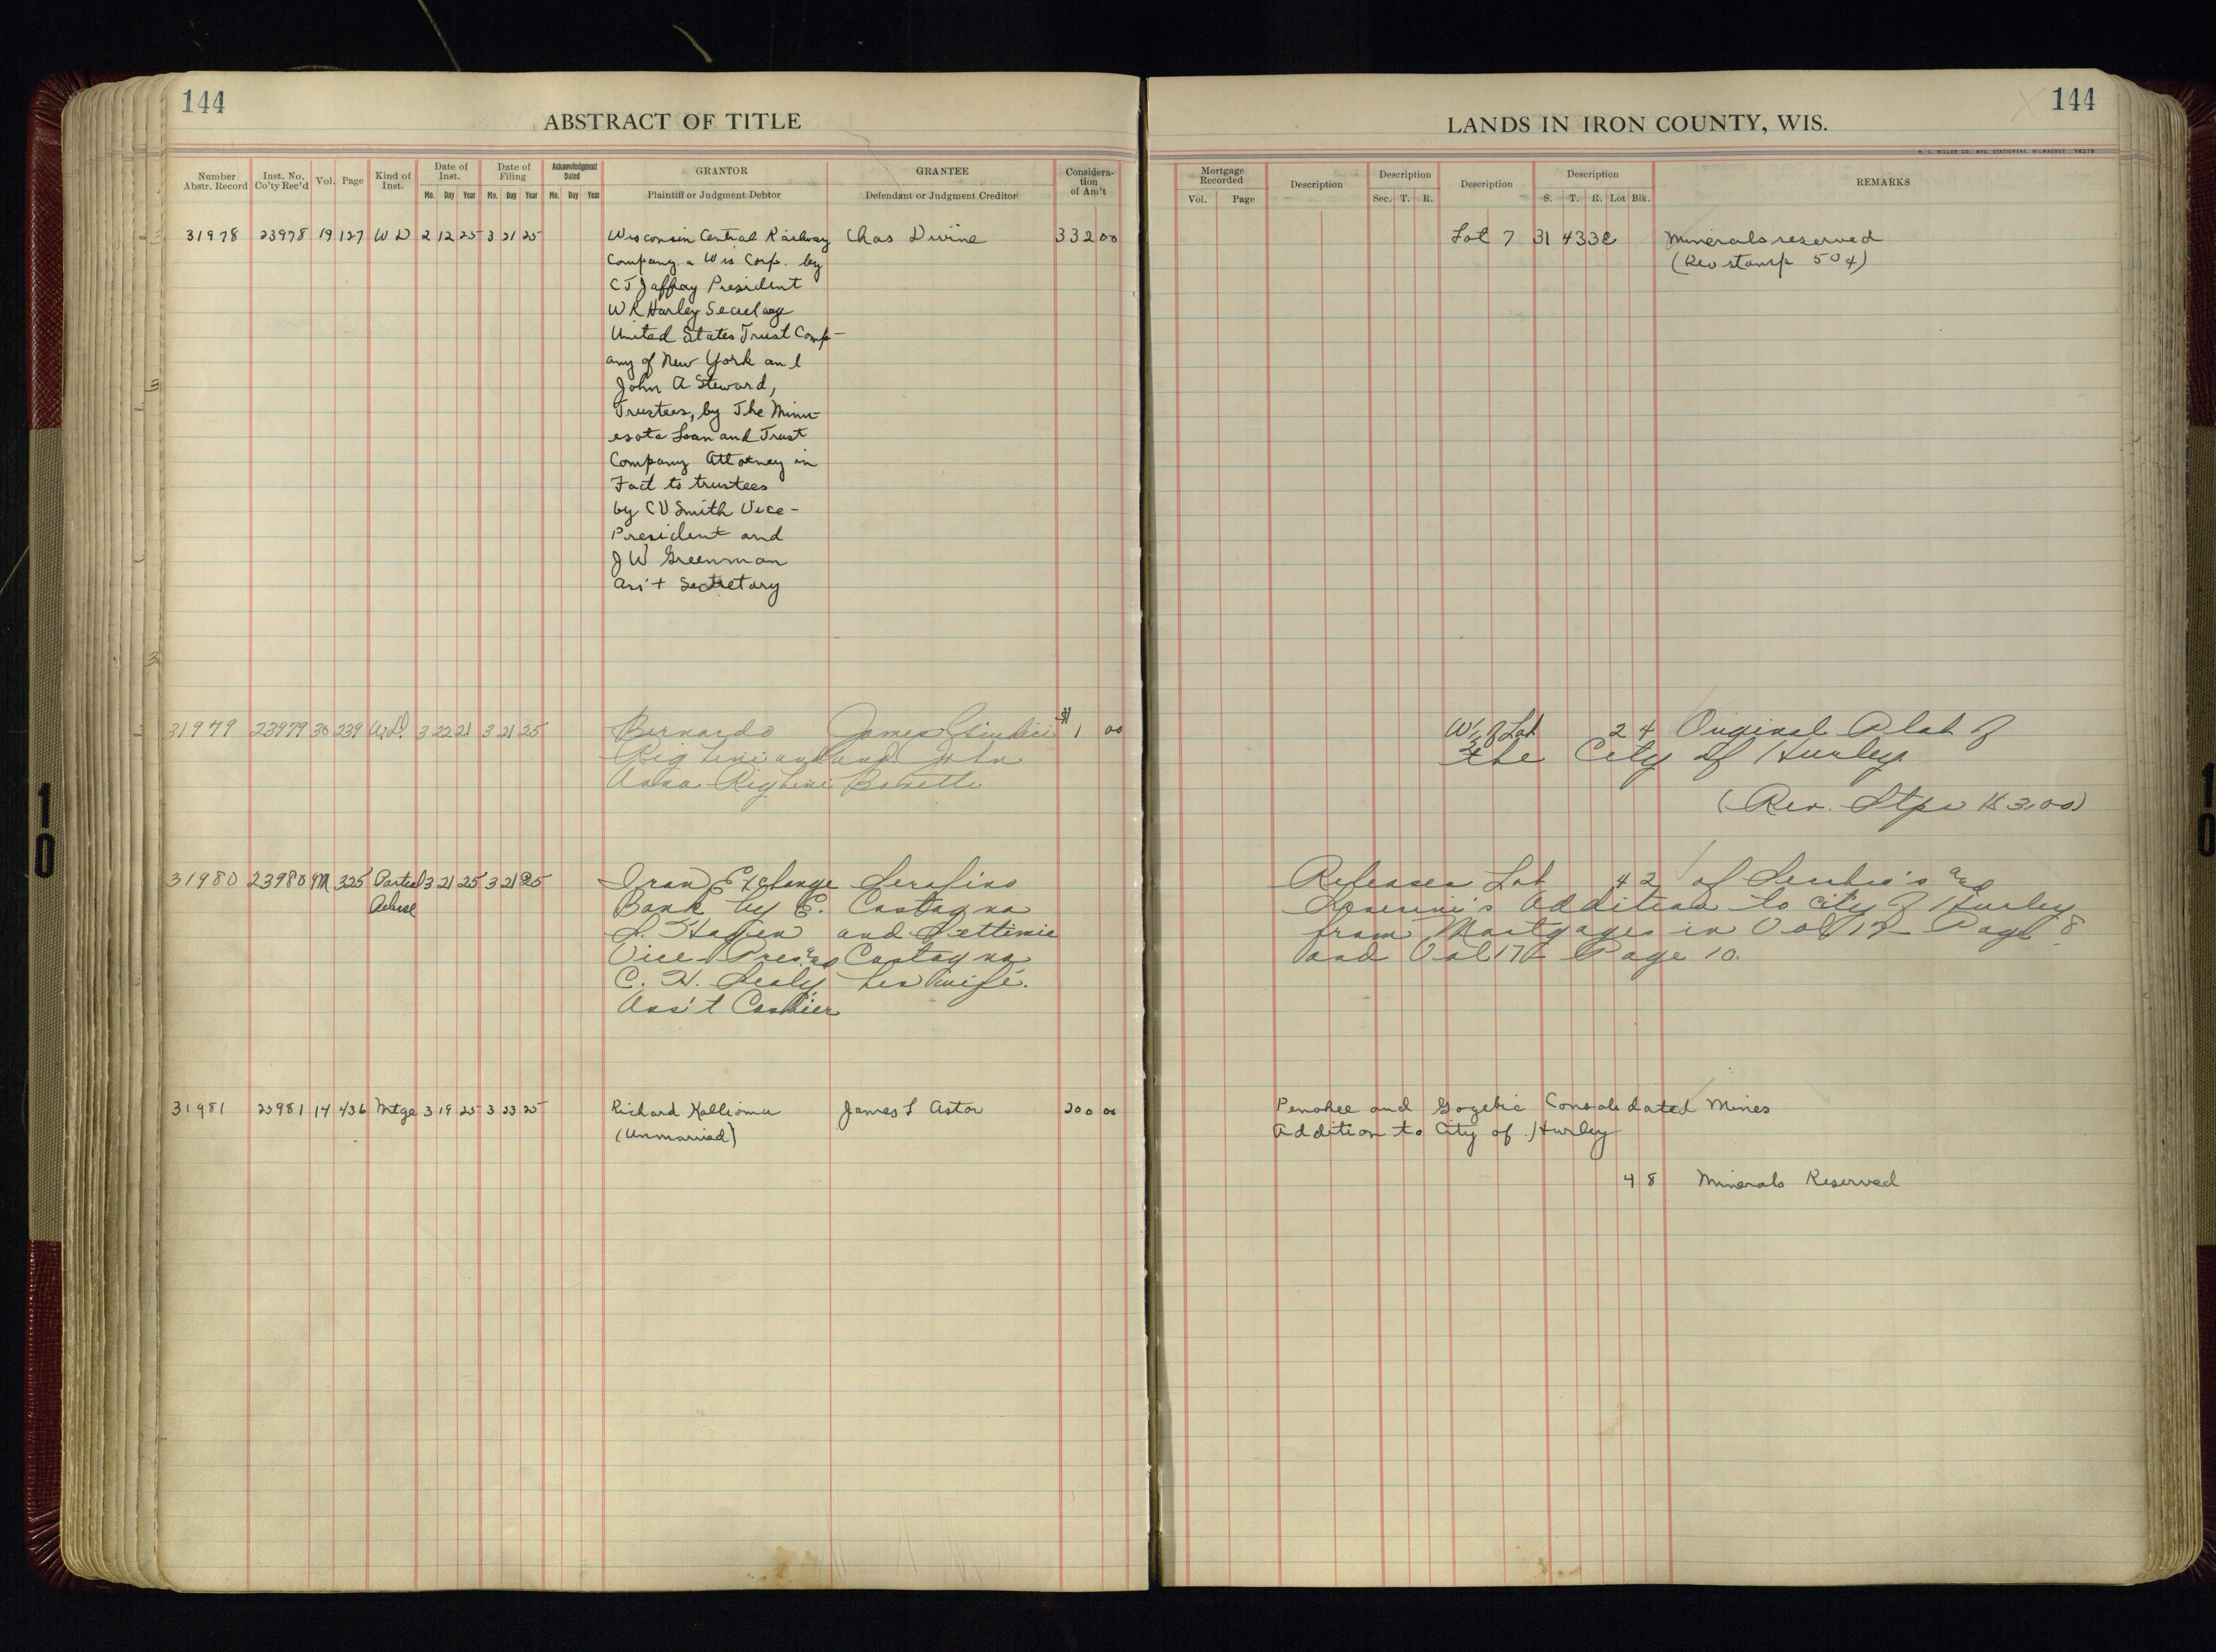 144
ABSTRACT OF TITLE
Number Abstr. Record
Inst. No. Co'ty Rec'd
Vol.
Page
Kind of Inst.
Date of Inst.
Mo. Day Year
Date of Filing
Mo. Day Year
Acknowledgment Dated
Mo. Day Year
GRANTOR
Plaintiff or Judgment Debtor
GRANTEE
Defendant or Judgment Creditor
Considera-
tion
of Am't
31978 23978 19 127 W D 2 12 25 3 21 25 Wisconsin Central Railway Chas Divine 332 00
Company. a Wis Corp. by
C J Jaffray President
W R Harley Secretary
United States Trust Comp-
any of New York and
John A Steward,
Trustees, by The Minn-
esota Loan and Trust
Company Attorney in
Fact to trustees
by C V Smith Vice-
President and
J W Greenman
Ass't Secretary
31979 23979 30 239 W.D. 3 22 21 3 21 25 Bernardo James $1 00
Righini and and John
Anna Righini
31980 23980 M 325 Partial 3 21 25 3 21 25 Iron Exchange Serafino
Release Bank by E. Castagna
S. and Settimia
Vice-Pres and Castagna
C. H. his wife.
Ass't Cashier
31981 23981 14 436 Mtge 3 19 25 3 23 25 Richard Kallioma James L Astor 200 00
(Unmarried)
144
LANDS IN IRON COUNTY, WIS.
H. C. MILLER CO., MFG. STATIONERS, MILWAUKEE
Mortgage Recorded
Vol. Page
Description
Description
Sec. T. R.
Description
Description
S. T. R. Lot Blk.
REMARKS
Lot 7 31 43 3E Minerals reserved
(Rev stamp 50¢)
W½ of Lot 2 4 Original Plat of
the City of Hurley
(Rev. Stps $3.00)
Releases Lot 4 2 of and
Addition to City of Hurley
from Mortgages in Vol 17 Page 8
and Vol 17 Page 10.
Penokee and Gogebic Consolidated Mines
Addition to City of Hurley
4 8 Minerals Reserved